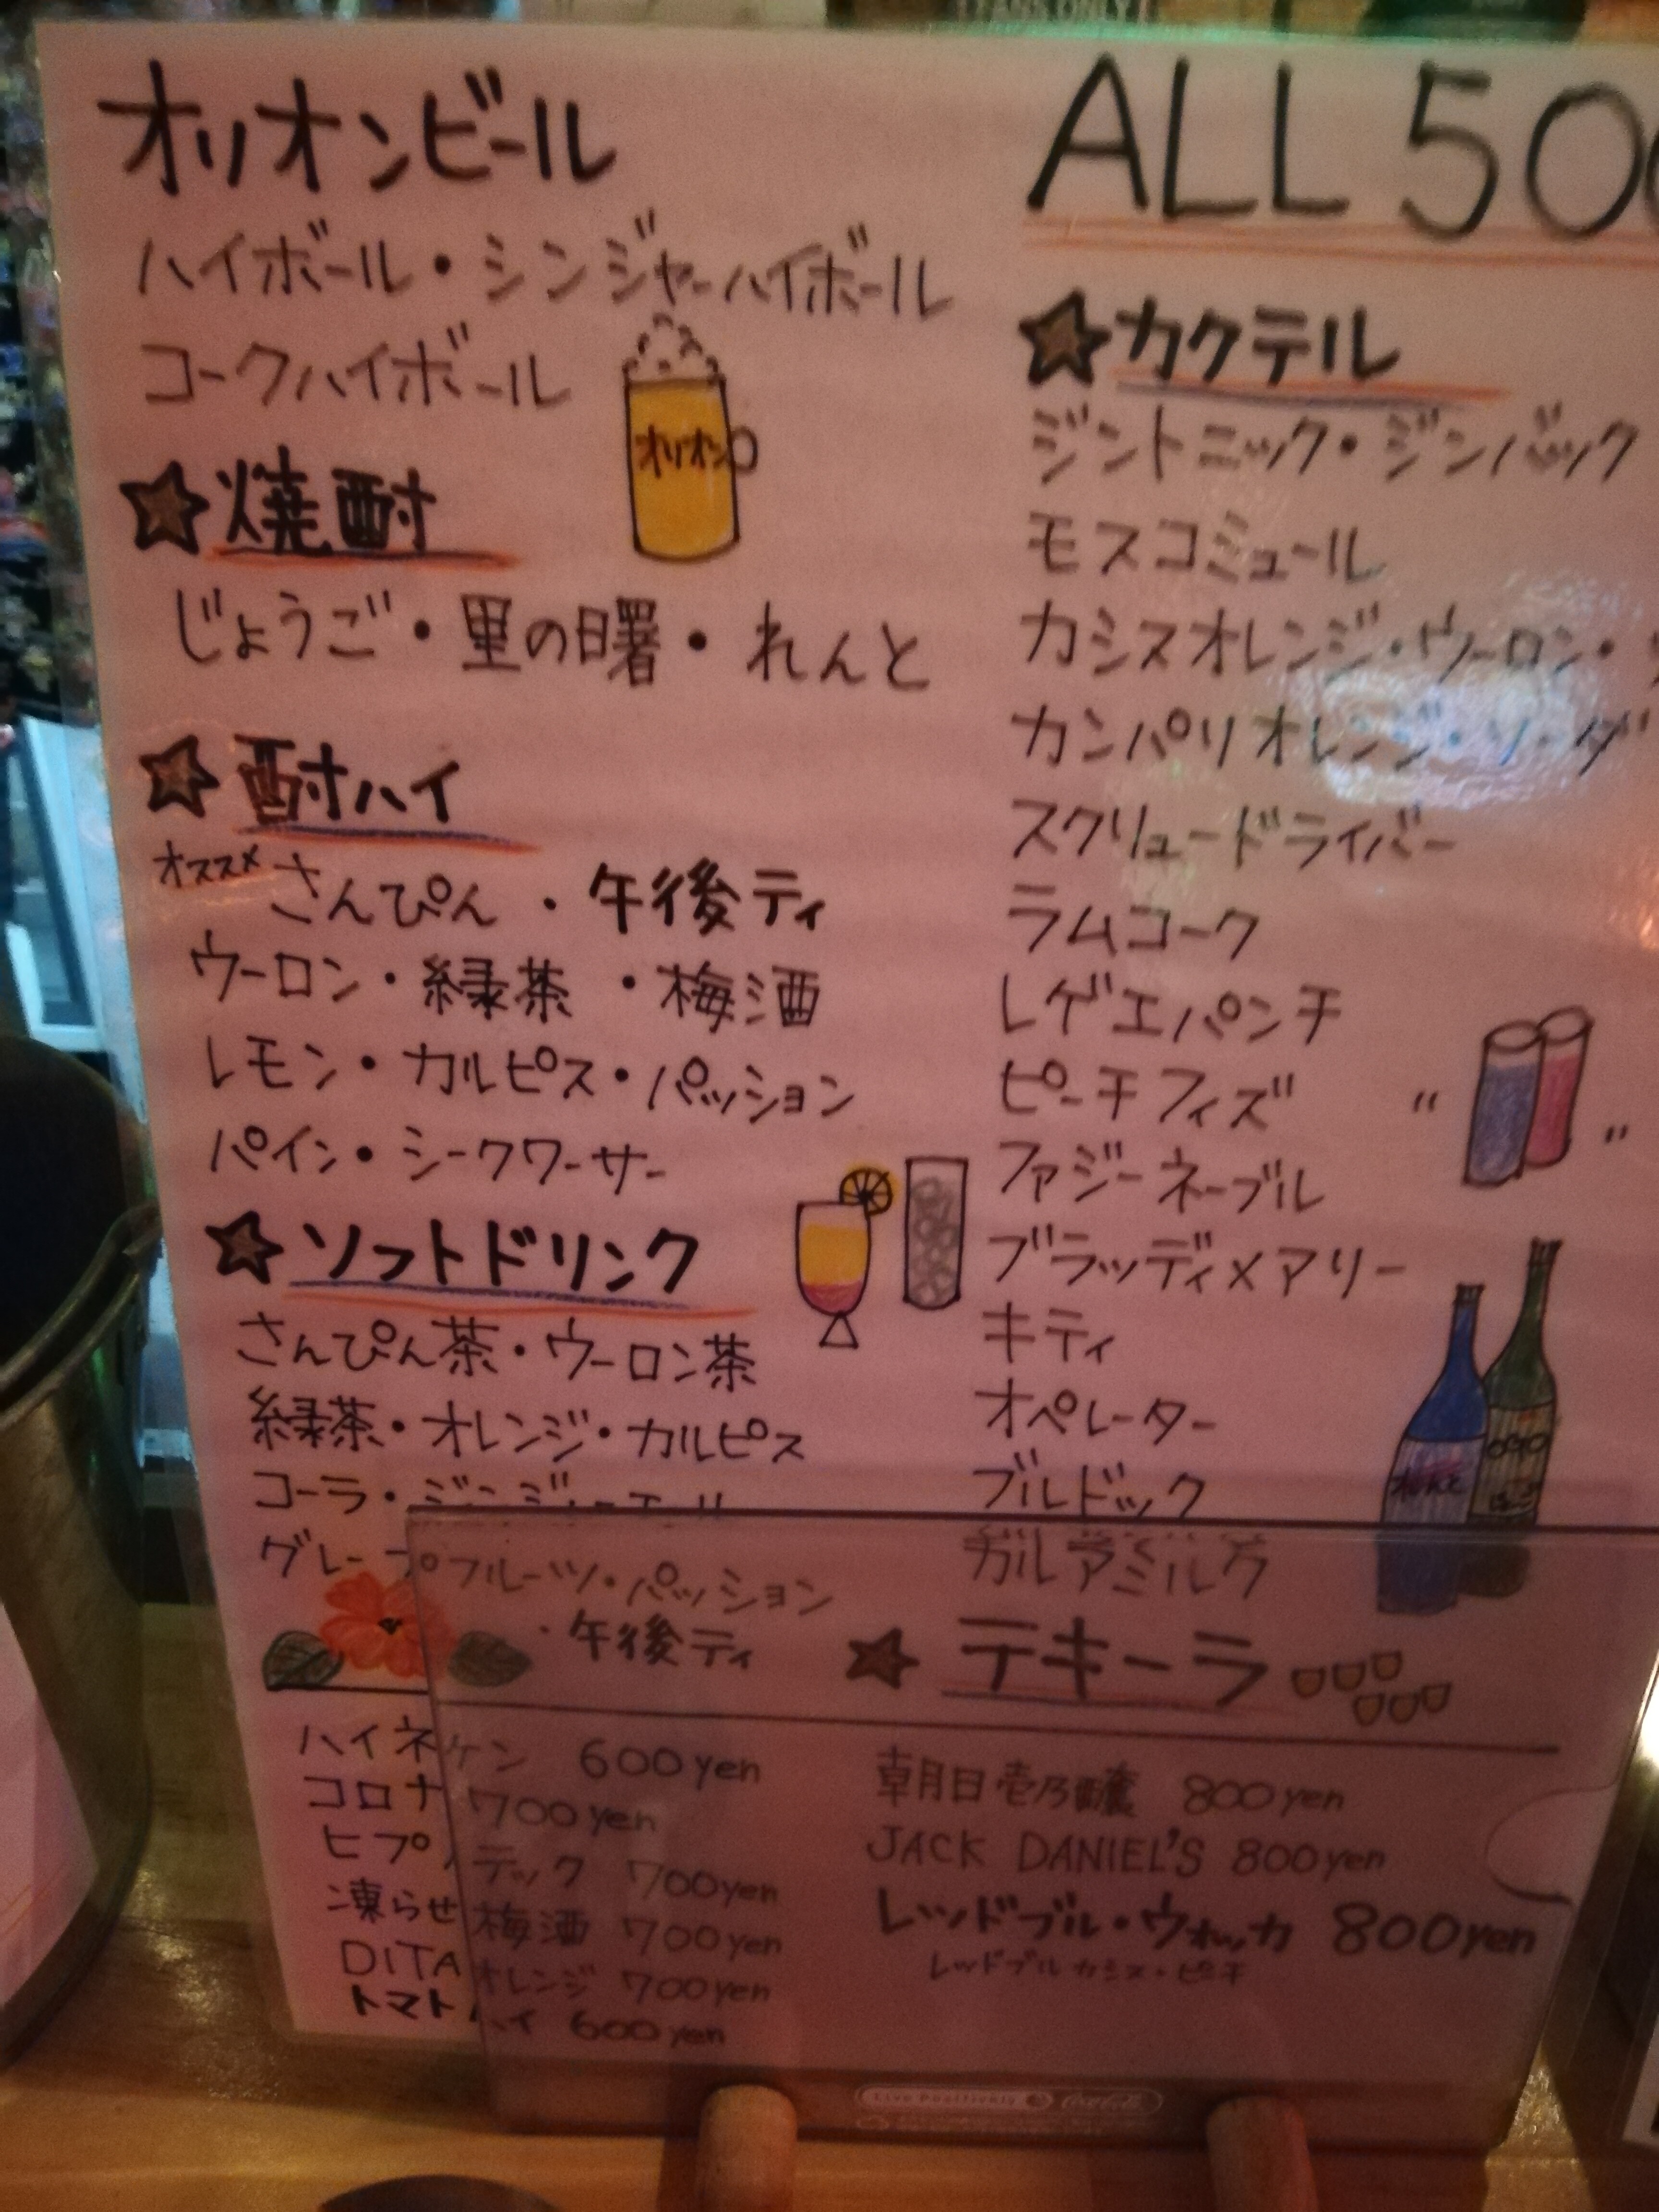 オリオンビール
ハイボール・シンジャーハイボール
コークハイボール
オリオン
★焼酎
じょうご・里の曙・れんと
★酎ハイ
オススメ さんぴん・午後ティ
ウーロン・緑茶・梅酒
レモン・カルピス・パッション
パイン・シークワーサー
★ソフトドリンク
さんぴん茶・ウーロン茶
緑茶・オレンジ・カルピス
コーラ・ジンジャーエール
グレープフルーツ・パッション
・午後ティ
ALL 500
★カクテル
ジントニック・ジンバック
モスコミュール
カシスオレンジ・ウーロン・
カンパリオレンジ・ソーダ
スクリュードライバー
ラムコーク
レゲエパンチ
ピーチフィズ
ファジーネーブル
ブラッディメアリー
キティ
オペレーター
ブルドック
カルアミルク
★テキーラ
ハイネケン 600yen
コロナ 700yen
ヒプノテック 700yen
凍らせ梅酒 700yen
DITAオレンジ 700yen
トマトハイ 600yen
朝日壱乃醸 800yen
JACK DANIEL'S 800yen
レッドブル・ウォッカ 800yen
レッドブルカシス・ピーチ
れんと
Live Positively Coca-Cola